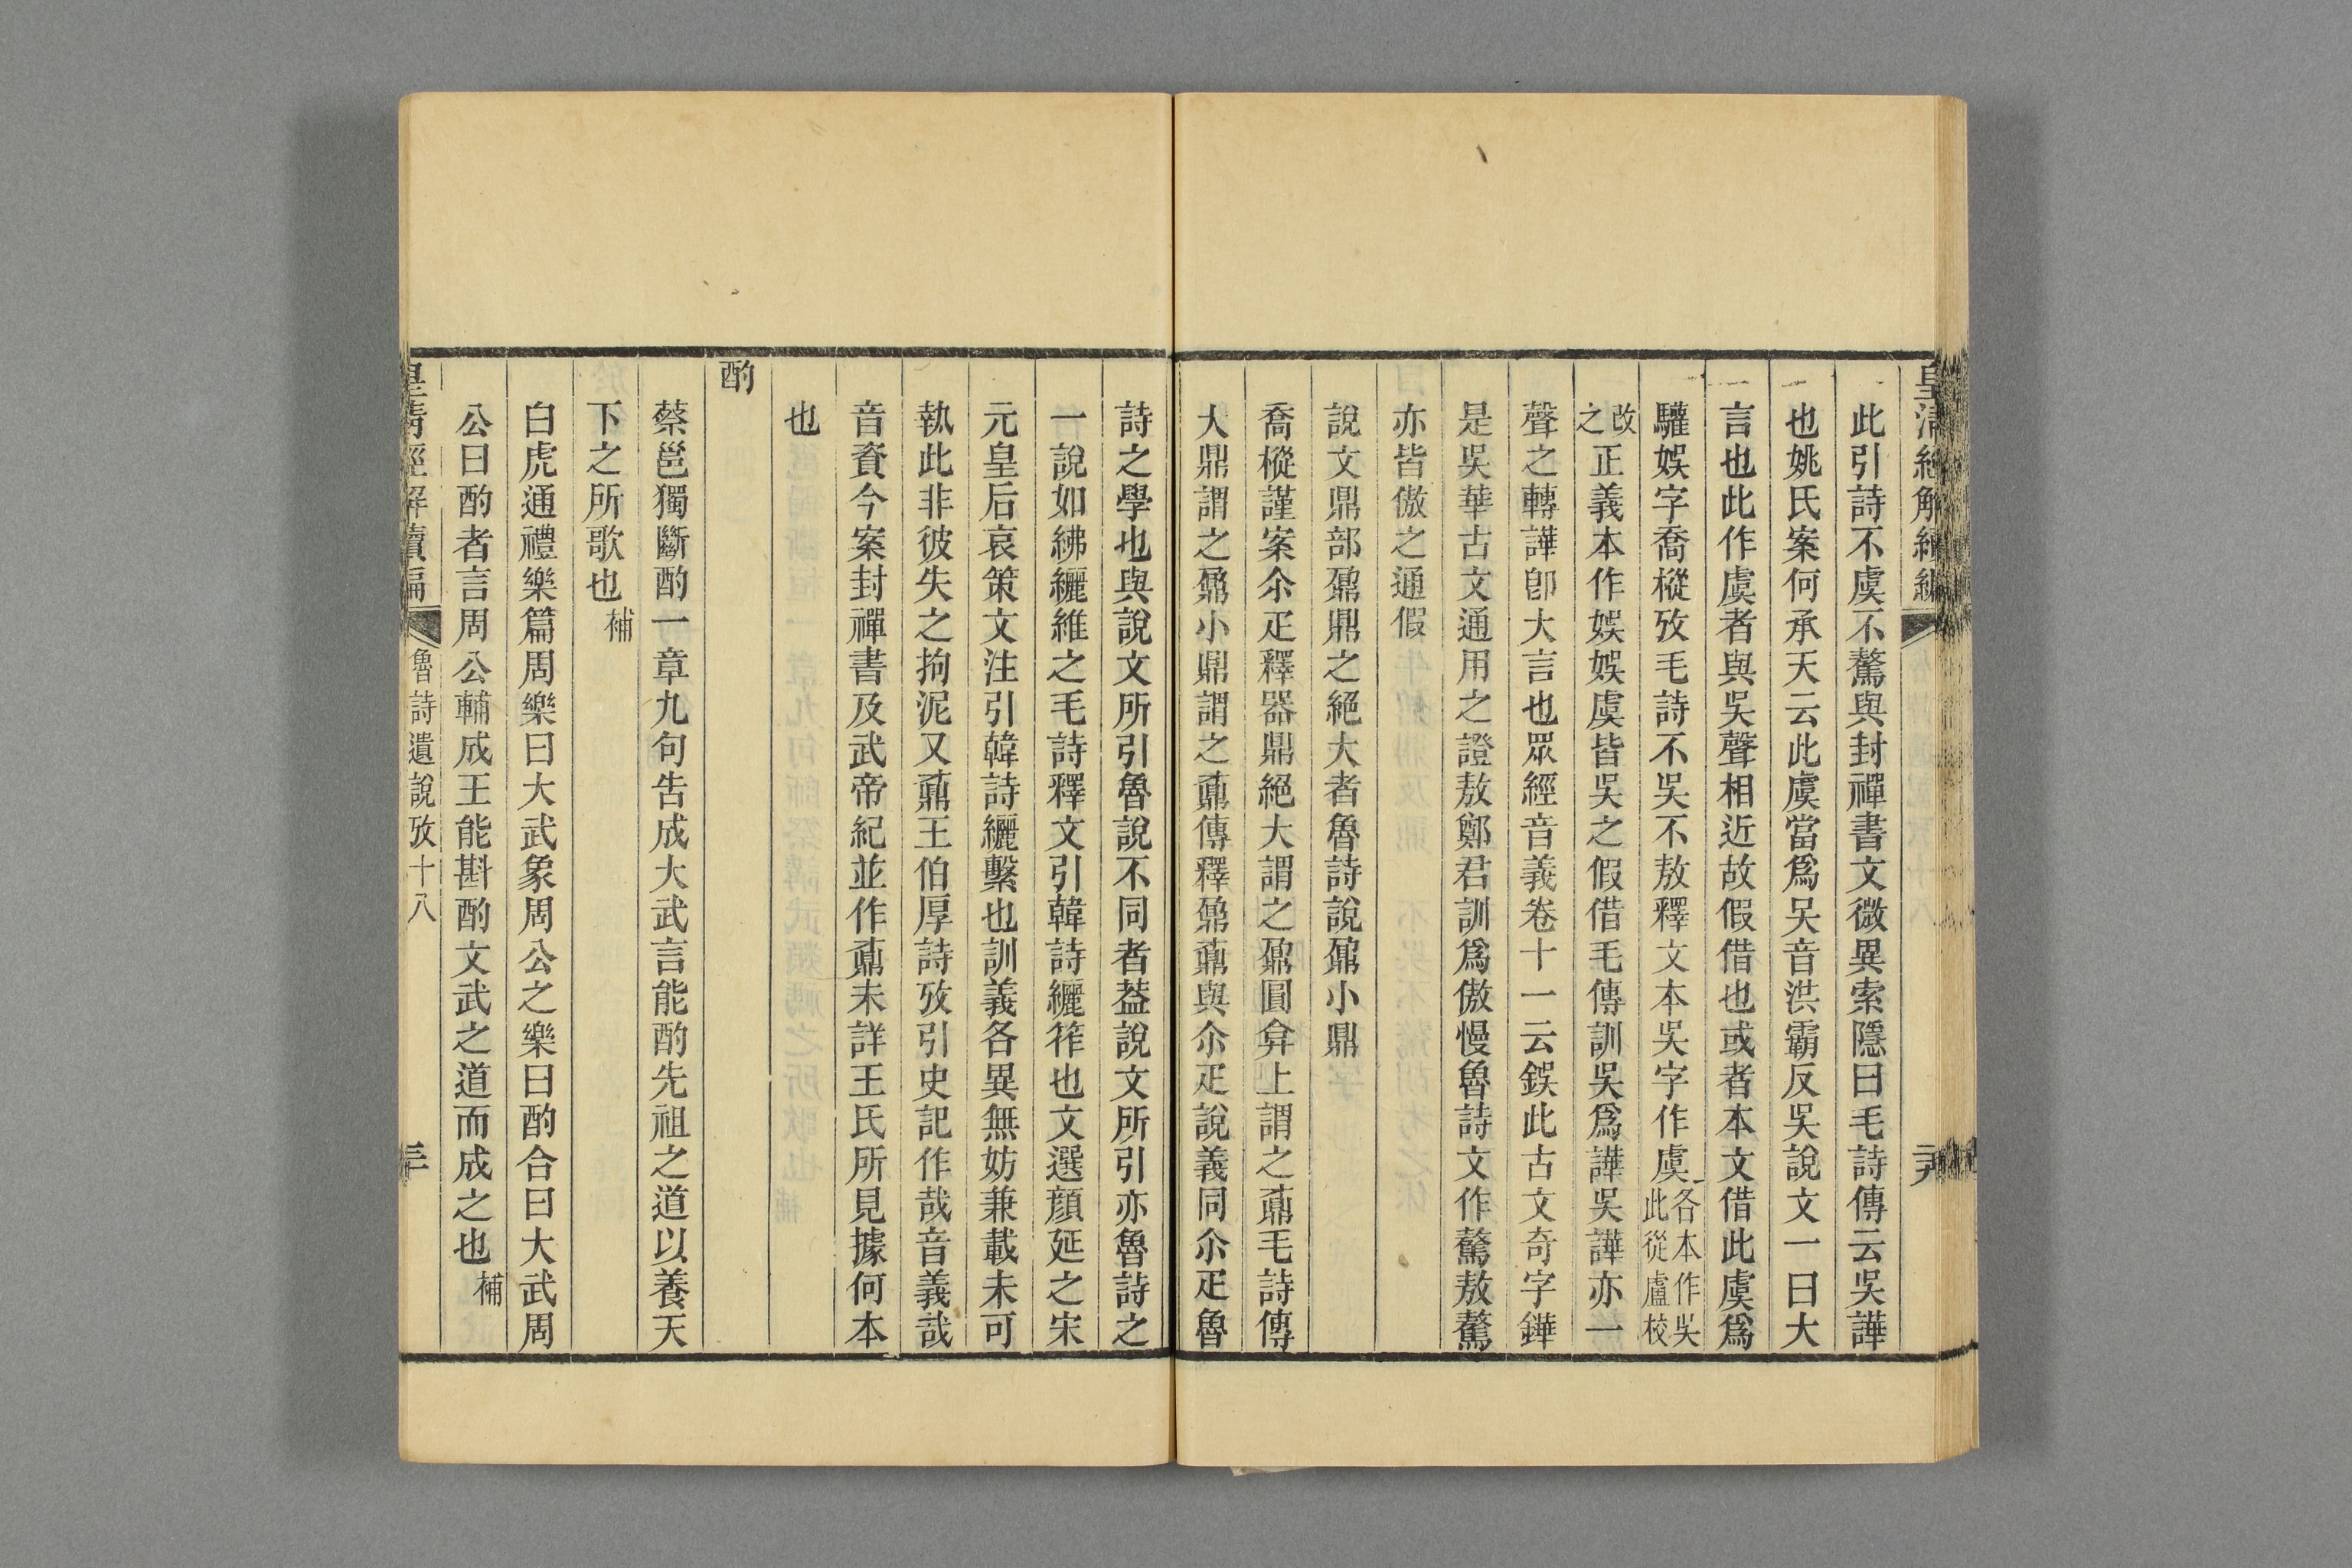 皇清經解續編
此引詩不虞不驁與封禪書文微異索隱曰毛詩傳云吳譁
也姚氏案何承天云此虞當爲吴音洪霸反吳說文一曰大
言也此作虞者與吳聲相近故假借也或者本文借此虞爲
驩娛字喬樅攷毛詩不吳不敖釋文本吳字作虞各本作吳此從盧校
改之正義本作娛娛虞皆吳之假借毛傳訓吳爲譁吳譁亦一
聲之轉譁卽大言也眾經音義卷十一云鋘此古文奇字鏵
是吳華古文通用之證敖鄭君訓爲傲慢魯詩文作驁敖驁
亦皆傲之通假
說文鼎部鼐鼎之絕大者魯詩說鼐小鼎
喬樅謹案尒疋釋器鼎絕大謂之鼐圓弇上謂之鼒毛詩傳
大鼎謂之鼐小鼎謂之鼒傳釋鼐鼒與尒疋說義同尒疋魯
詩之學也與說文所引魯說不同者葢說文所引亦魯詩之
一說如紼纚維之毛詩釋文引韓詩纚筰也文選顏延之宋
元皇后哀策文注引韓詩纚繫也訓義各異無妨兼載未可
執此非彼失之拘泥又鼒王伯厚詩攷引史記作哉音義哉
音資今案封禪書及武帝紀並作鼒未詳王氏所見據何本
也
酌
蔡邕獨斷酌一章九句告成大武言能酌先祖之道以養天
下之所歌也補
白虎通禮樂篇周樂曰大武象周公之樂曰酌合曰大武周
公曰酌者言周公輔成王能斟酌文武之道而成之也補
皇清經解續編 魯詩遺說攷十八